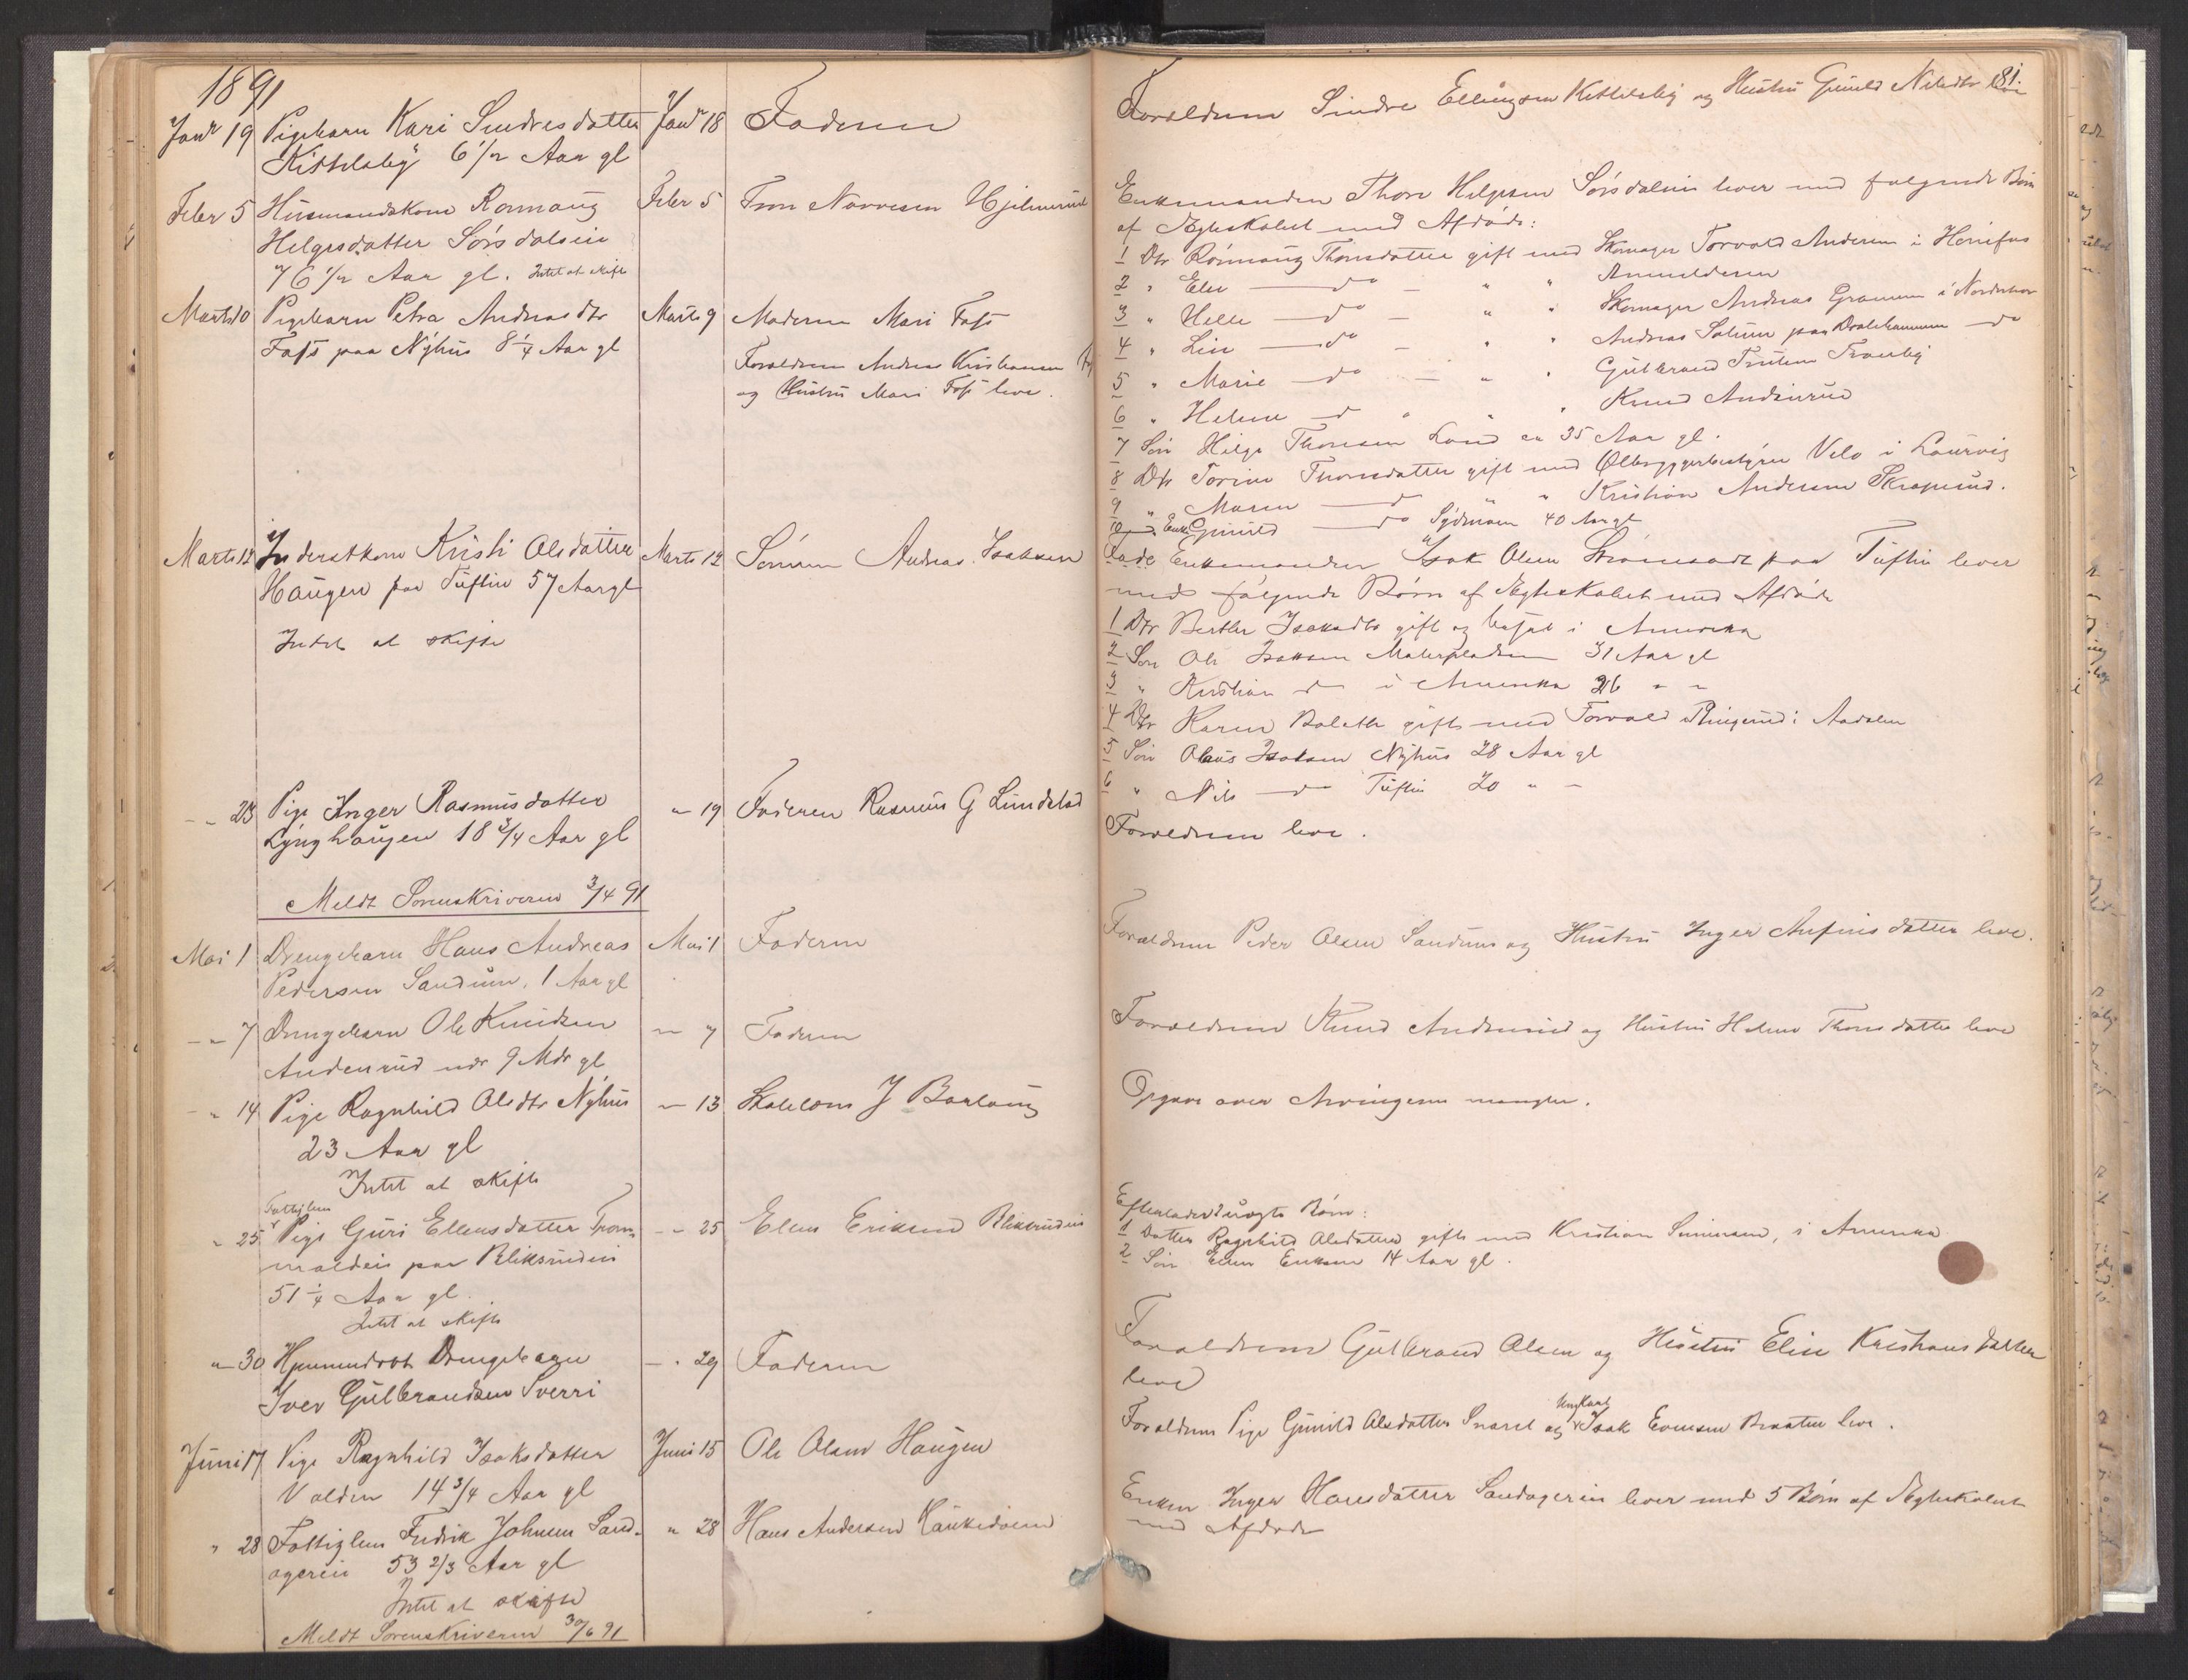 1891
Janr 19 Pigebarn Kari Sindresdatter Janr 18 Faderen
Kittelsby 6 1/2 Aar gl
Febr 5 Husmandskone Rønnaug Febr 5 Hjelmerud
Helgesdatter Sørsdalseie
76 1/2 Aar gl. Intet at skifte
Marts 10 Pigebarn Petra Andreasdtr Marts 9 Moderen Mari Foss
Foss paa Nyhus 8 1/4 Aar gl
Forældrene Andreas Kristiansen
og Hustru Mari Foss leve.
Marts 12 Inderstkone Kristi Olsdatter Marts 12 Sønnen Andreas Isaksen
Haugen paa Tuftin 57 Aar gl
Intet at skifte
" 23 Pige Inger Rasmusdatter " 19 Faderen Rasmus G Lundstad
Lynghaugen 18 3/4 Aar gl
Meldt Sorenskriveren 3/4 91
Mai 1 Drengebarn Hans Andreas Mai 1 Faderen
Pedersen Sandum, 1 Aar gl
" 7 Drengebarn Ole Knudsen " 7 Faderen
Andenrud 9 Mdr gl
" 14 Pige Ragnhild Olsdtr Nyhus " 13 J Borlaug
23 Aar gl
Intet at skifte
Fattiglem
" 25 Pige Guri Ellensdatter From- " 25 Ellen Eriksen Bliksrudeie
moldeie paa Bliksrudeie
51 1/4 Aar gl.
Intet at skifte
" 30 Hjemmedøbt Drengebarn " 29 Faderen
Iver Gulbrandsen Sverri
Juni 17 Pige Ragnhild Isaksdatter Juni 15 Ole Olsen Haugen
Volden 14 3/4 Aar gl
" 28 Fattiglem Fredrik Johnsen Sand- " 28 Hans Andersen
agereie 53 2/3 Aar gl
Intet at skifte
Meldt Sorenskriveren 30/6 91
81.
Forældrene Sindre Ellingsen Kittelsby og Hustru Gunild Nilsdtr leve
Enkemanden Thore Helgesen Sørsdalseie lever med følgende Børn
af Ægteskabet med Afdøde:
1 Dtr Rønnaug Thorsdatter gift med Skomager Torvald Andersen i Hønefos
2 " Eli do " " Anmelderen
3 " Helle do " " Skomager Andreas Gramen i Norderhov
4 " Lise do " " Andreas Solum paa do
5 " Marie do " " Gulbrand Tronby
6 " Helene do " " Knud Andenrud
7 Søn Helge Thorsen Lund ca 35 Aar gl.
8 Dtr Torine Thorsdatter gift med Ølbryggerbestyrer Velo i Laurvig
9 " Maren do " " Kristian Andersen
10 " Enke Gunild do 40 Aar gl
Enkemanden Isak Olsen paa Tuftin lever
med følgende Børn af Ægteskabet med Afdøde
1 Dtr Berthe Isaksdtr gift og bosat i Amerika
2 Søn Ole Isaksen 31 Aar gl
3 " Kristian do i Amerika 26 " "
4 Dtr Karen Bolette gift med Torvald Ringerud i Aadalen
5 Søn Olaus Isaksen Nyhus 28 Aar gl
6 " Nils do Tuftin 20 " "
Forældrene leve.
Forældrene Peder Olsen Sandum og Hustru Inger Arfinsdatter leve.
Forældrene Knud Andenrud og Hustru Helene Thorsdatter leve
Opgave over Arvingerne mangler.
Efterlader uægte Børn:
1 Datter Ragnhild Olsdatter gift med Kristian Simensen, i Amerika
2 Søn Ellen Eriksen 14 Aar gl.
Forældrene Gulbrand Olsen og Hustru Eline Kristiansdatter
leve
Ungkarl
Forældrene Pige Gunild Olsdatter og Isak Evensen Braaten leve.
Enken Inger Hansdatter Sandagereie lever med 5 Børn af Ægteskabet
med Afdøde